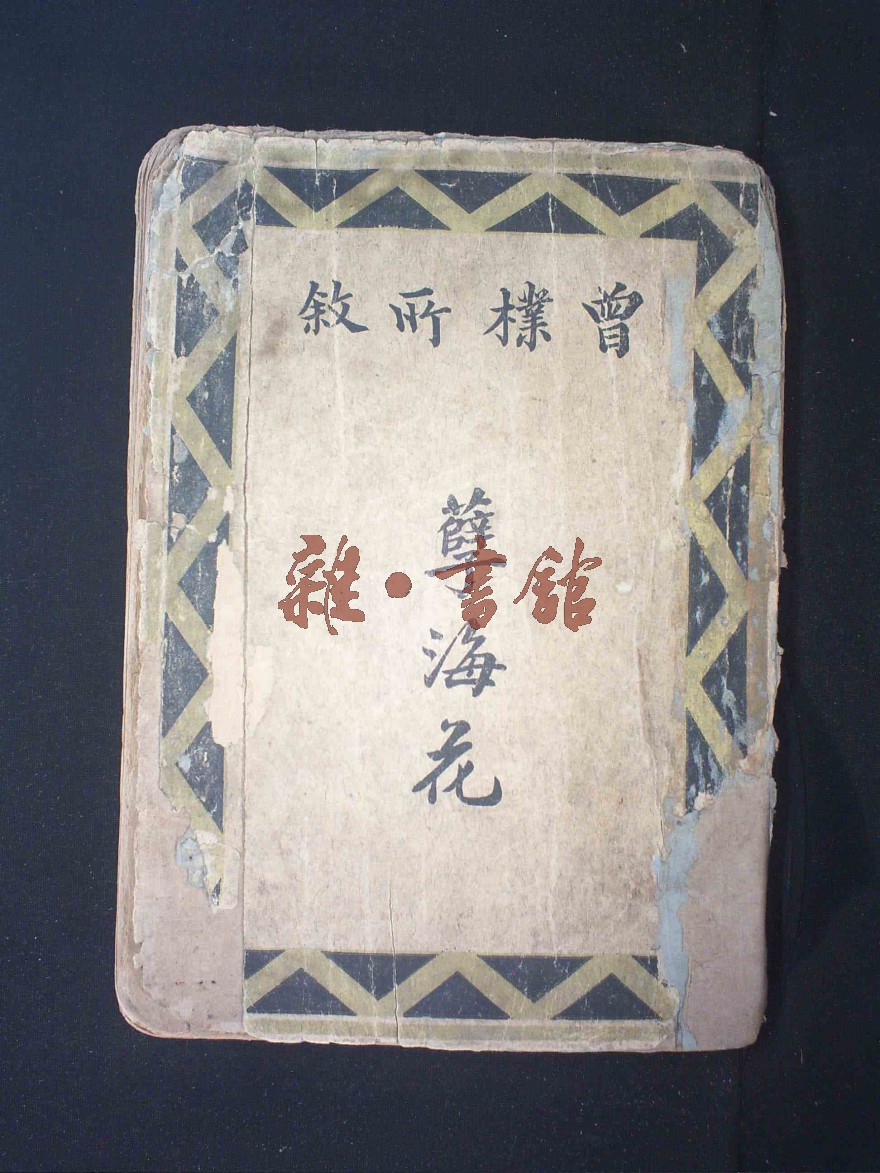 曾樸所敘
孽海花
雜·書館